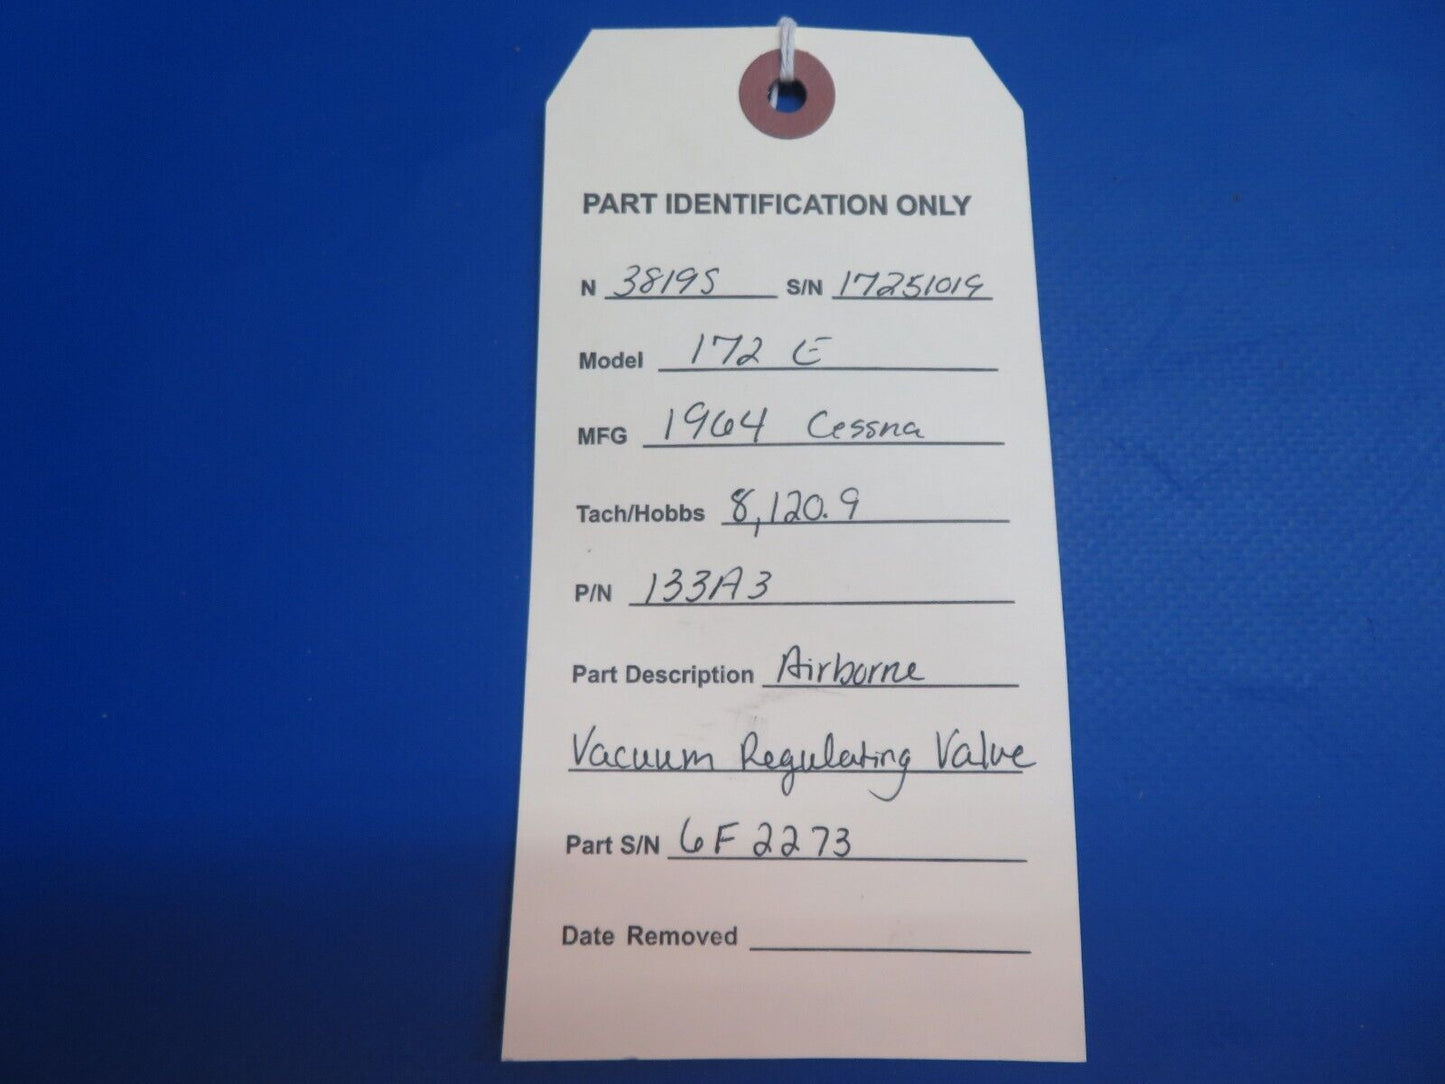 PART IDENTIFICATION ONLY
N 3819S S/N 17251019
Model 172 E
MFG 1964 Cessna
Tach/Hobbs 8,120.9
P/N 133A3
Part Description Airborne
Vacuum Regulating Valve
Part S/N 6F2273
Date Removed